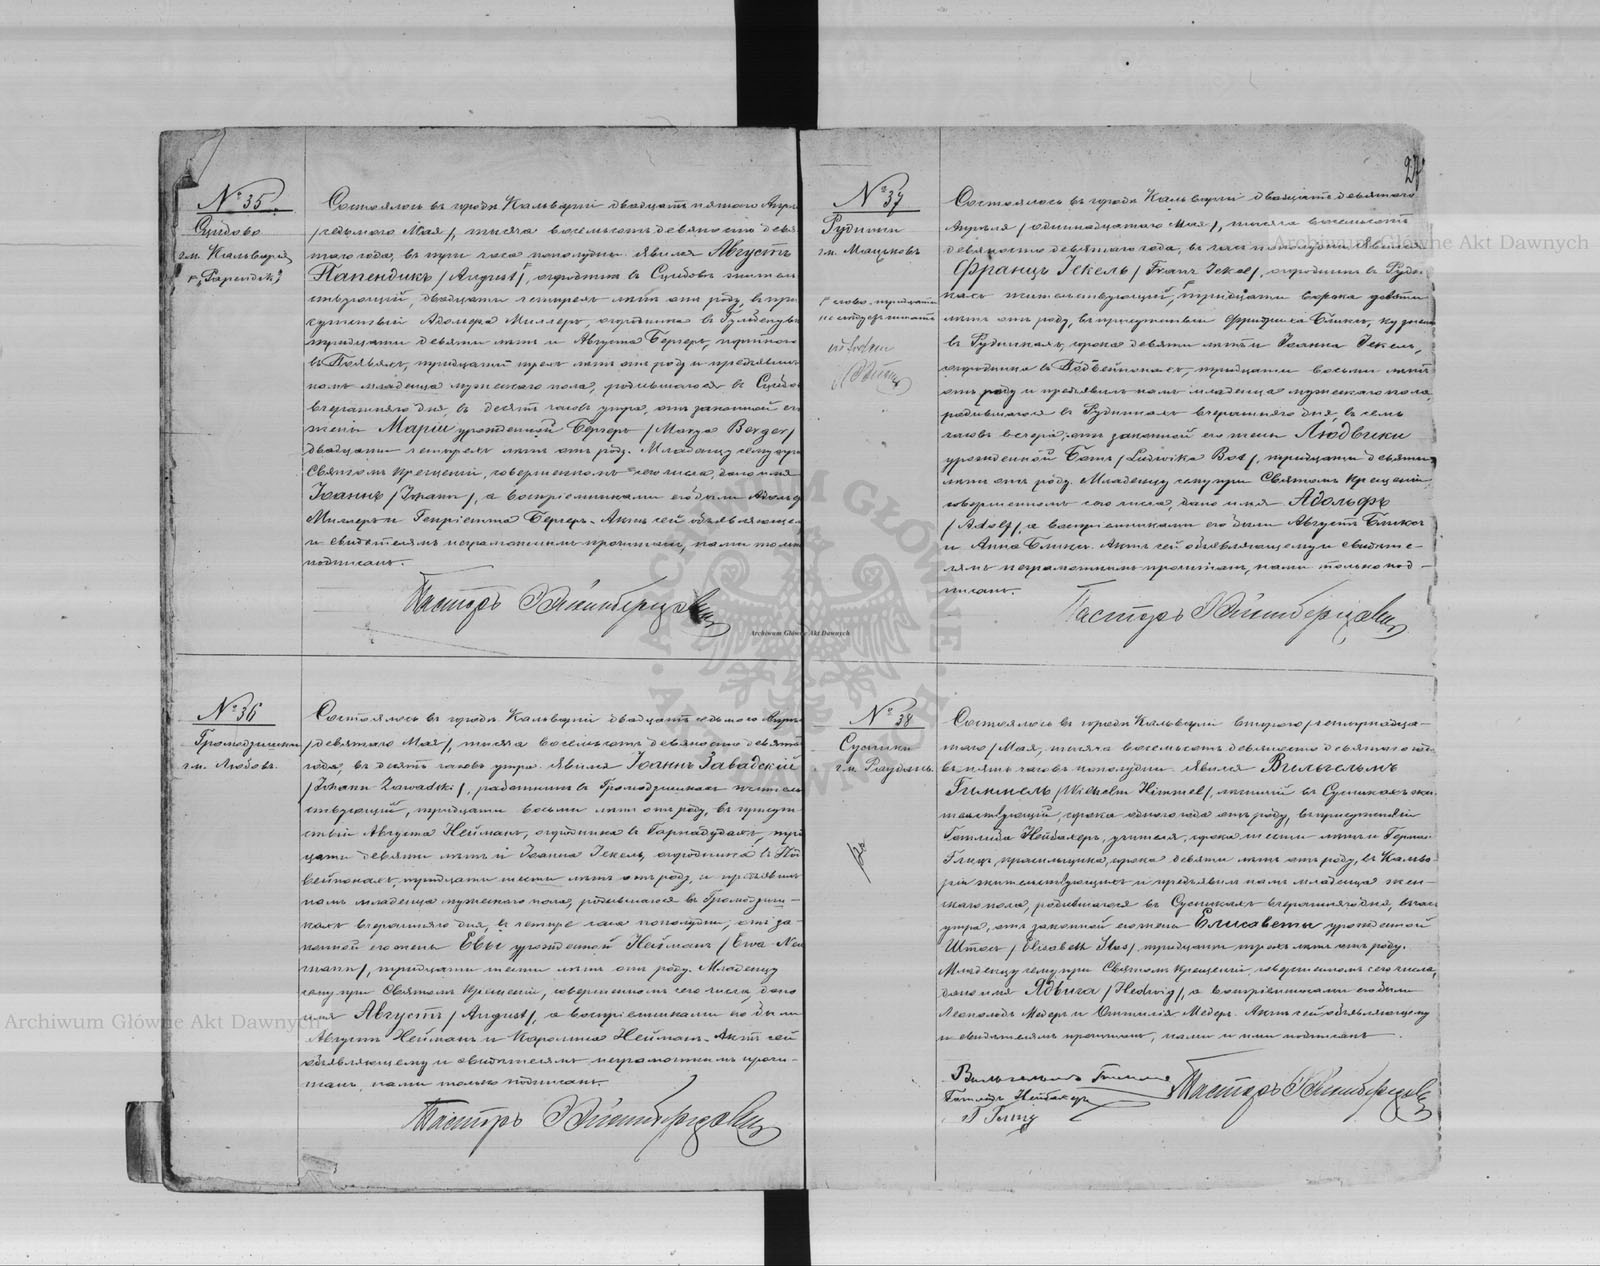 № 35
Сцидово
гм. Кальварія
Состоялось въ городѣ Кальваріи двадцать пятаго Апрѣ
/седьмого Мая/, тысяча восемьсотъ девяносто девя
таго года, въ три часа пополудни. Явился Августъ
Папендикъ /August/, огородникъ въ Сцидовѣ житель
ствующій, двадцати четырехъ лѣтъ отъ роду, въ при
сутствіи Адольфа Миллеръ, огородника въ
тридцати девяти лѣтъ и Августа Бергеръ,
тридцати трехъ лѣтъ отъ роду и предъявилъ
намъ младенца мужескаго пола, родившагося въ Сцидо
вчерашняго дня, въ десять часовъ утра, отъ законной его
жены Маріи урожденной Бергеръ /Marya Berger/
двадцати четырехъ лѣтъ отъ роду. Младенцу сему при
Святомъ Крещеніи, совершенномъ сего числа, дано имя
Іоаннъ /Johann/, а воспріемниками его были Адольф
Миллеръ и Генріетта Бергеръ. Актъ сей объявляюще
и свидѣтелямъ неграмотнымъ прочитанъ, нами только
подписанъ.
Пасторъ
№ 36
Громадзишки
гм. Любовъ.
Состоялось въ городѣ Кальваріи двадцать седьмого Апрѣ
/девятаго Мая/, тысяча восемьсотъ девяносто девят
года, въ десять часовъ утра. Явился Іоаннъ Завадскій
/Johann Zawadski/, работникъ въ Громадзишкахъ житель
ствующій, тридцати восьми лѣтъ отъ роду, въ присут
ствіи Августа Нейманъ, огородника въ трид
цати девяти лѣтъ и Іоанна Іекель, огородника въ Под
вейпонахъ, тридцати шести лѣтъ отъ роду, и предъявилъ
намъ младенца мужескаго пола, родившагося въ Громадзиш-
кахъ вчерашняго дня, въ четыре часа пополудни, отъ за-
конной его жены Евы урожденной Нейманъ /Ewa Neu
mann/, тридцати шести лѣтъ отъ роду. Младенцу
сему при Святомъ Крещеніи, совершенномъ сего числа, дано
имя Августъ /August/, а воспріемниками его были
Августъ Нейманъ и Каролина Нейманъ. Актъ сей
объявляющему и свидѣтелямъ неграмотнымъ прочи-
танъ, нами только подписанъ.
Пасторъ
27
№ 37
Рудишки
гм. Мацьковъ
слово „тридцати
не слѣдуетъ читать
Состоялось въ городѣ Кальваріи двадцать девятаго
Апрѣля /одиннадцатаго Мая/, тысяча восемьсотъ
девяносто девятаго года, въ часъ пополудни. Явился
Францъ Іекель /Franz Jekel/, огородникъ въ Руди-
кахъ жительствующій, тридцати сорока девяти
лѣтъ отъ роду, въ присутствіи Фридриха Бликсъ, кузнеца
въ Рудишкахъ, сорока девяти лѣтъ и Іоанна Іекель,
огородника въ Подвейпонахъ, тридцати восьми лѣтъ
отъ роду и предъявилъ намъ младенца мужескаго пола,
родившагося въ Рудишкахъ вчерашняго дня, въ семь
часовъ вечера, отъ законной его жены Людвики
урожденной Ботъ /Ludwika Bot/, тридцати девяти
лѣтъ отъ роду. Младенцу сему при Святомъ Крещеніи,
совершенномъ сего числа, дано имя Адольфъ
/Adolf/, а воспріемниками его были Августъ Бликсъ
и Анна Бликсъ. Актъ сей объявляющему и свидѣте-
лямъ неграмотнымъ прочитанъ, нами только под-
писанъ.
Пасторъ
№ 38
Сусники
гм. Раудань.
Состоялось въ городѣ Кальваріи второго /четырнадца-
таго/ Мая, тысяча восемьсотъ девяносто девятаго года
въ пять часовъ пополудни. Явился Вильгельмъ
Гиммель /Wilhelm Himmel/, въ Сусникахъ жи
тельствующій, сорока одного года отъ роду, въ присутствіи
Готлиба Нейбахеръ, учителя, сорока шести лѣтъ и Герман
Глицъ, красильщика, сорока девяти лѣтъ отъ роду, въ Кальва
ріи жительствующихъ и предъявилъ намъ младенца жен-
скаго пола, родившагося въ Сусникахъ вчерашняго дня, въ часъ
утра, отъ законной его жены Елисаветы урожденной
Штосъ /Elisabeth Stos/, тридцати трехъ лѣтъ отъ роду.
Младенцу сему при Святомъ Крещеніи, совершенномъ сего числа,
дано имя Ядвига /Hedwig/, а воспріемниками его были
Леопольдъ Медеръ и Оттилія Медеръ. Актъ сей объявляющему
и свидѣтелямъ прочитанъ, нами и ими подписанъ.
Вильгельмъ
Готлибъ Нейбахеръ
Г Глицъ
Пасторъ
Archiwum Główne Akt Dawnych
Archiwum Główne Akt Dawnych
Archiwum Główne Akt Dawnych